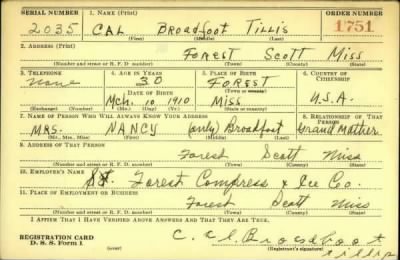 SERIAL NUMBER 1. NAME (Print) ORDER NUMBER
2035 CAL Broadfoot Tillis 1751
(First) (Middle) (Last)
2. ADDRESS (Print)
Forest Scott Miss
(Number and street or R. F. D. number) (Town) (County) (State)
3. TELEPHONE 4. AGE IN YEARS 5. PLACE OF BIRTH 6. COUNTRY OF CITIZENSHIP
None 30 FOREST
DATE OF BIRTH (Town) (County)
Mch. 10 1910 Miss U.S.A.
(Exchange) (Number) (Mo.) (Day) (Yr.) (State or country)
7. NAME OF PERSON WHO WILL ALWAYS KNOW YOUR ADDRESS 8. RELATIONSHIP OF THAT PERSON
MRS. NANCY (only) Broadfoot Grand Mother
(Mr., Mrs., Miss) (First) (Middle) (Last)
9. ADDRESS OF THAT PERSON
Forest Scott Miss
(Number and street or R. F. D. number) (Town) (County) (State)
10. EMPLOYER'S NAME
Forest Compress & Ice Co.
11. PLACE OF EMPLOYMENT OR BUSINESS
Forest Scott Miss
(Number and street or R. F. D. number) (Town) (County) (State)
I AFFIRM THAT I HAVE VERIFIED ABOVE ANSWERS AND THAT THEY ARE TRUE.
REGISTRATION CARD
D. S. S. Form 1 (over) (Registrant's signature)
Cal Broadfoot
Tillis